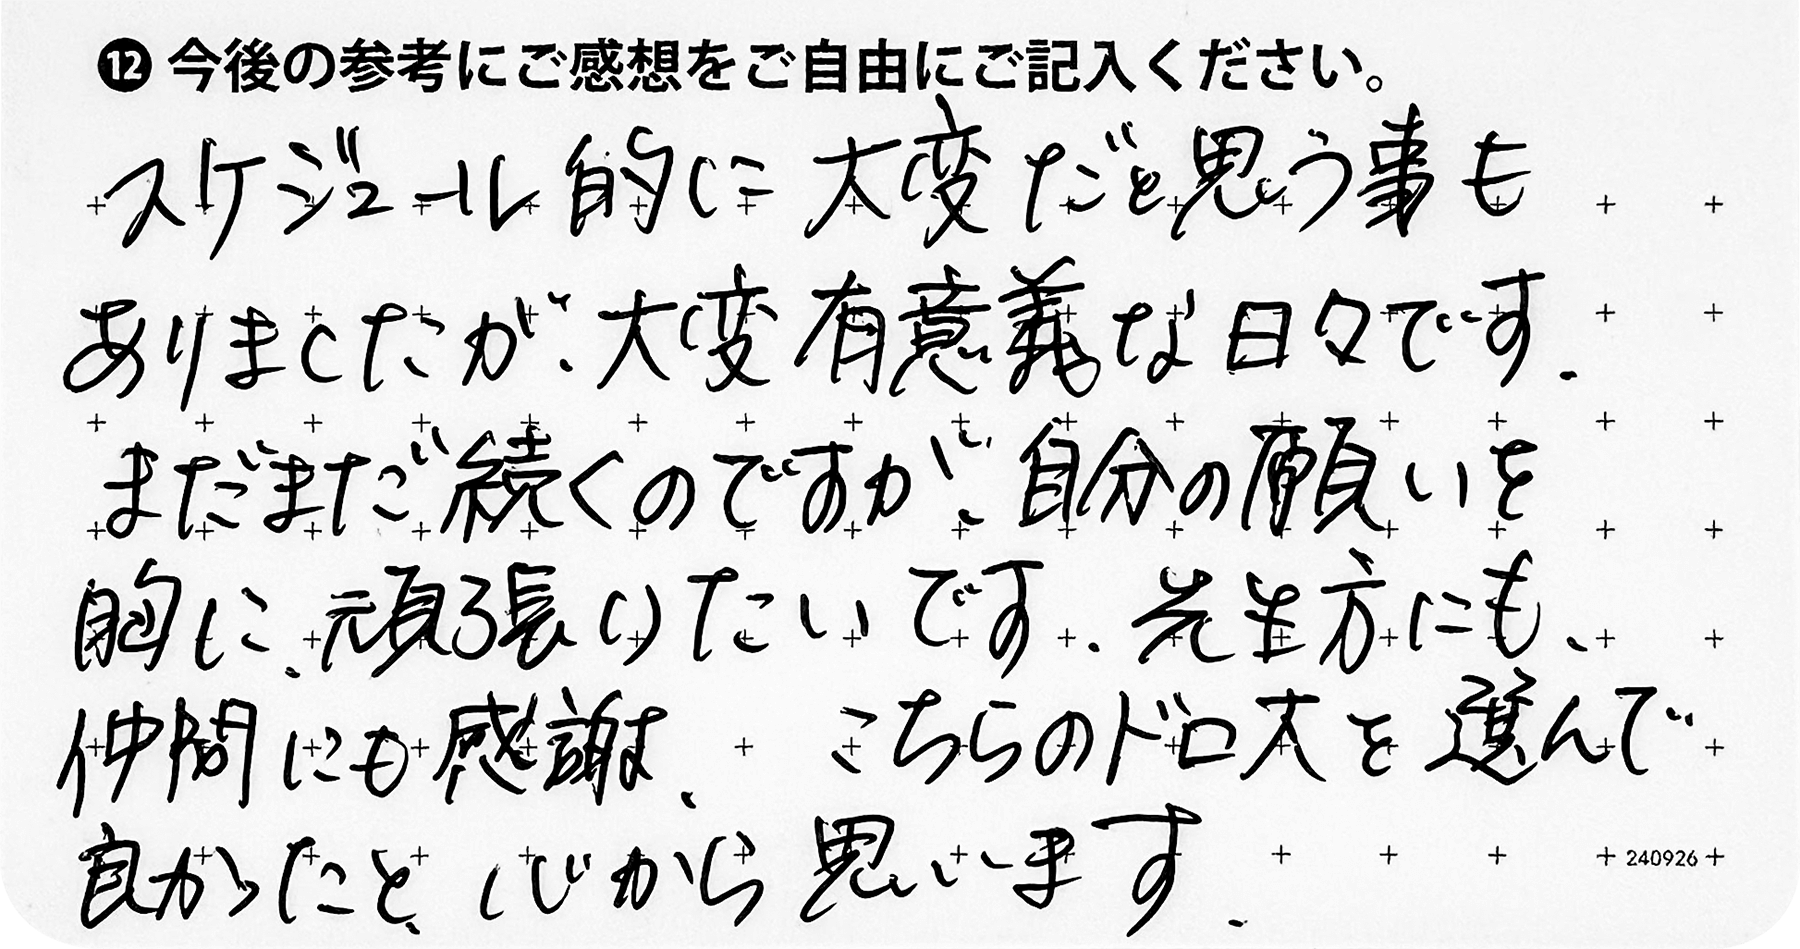 ⓬ 今後の参考にご感想をご自由にご記入ください。
スケジュール的に大変だと思う事も
ありましたが、大変有意義な日々です.
まだまだ続くのですが、自分の願いを
胸に、頑張りたいです. 先生方にも、
仲間にも感謝、 こちらのドロ大を選んで
良かったと、心から思います.
240926